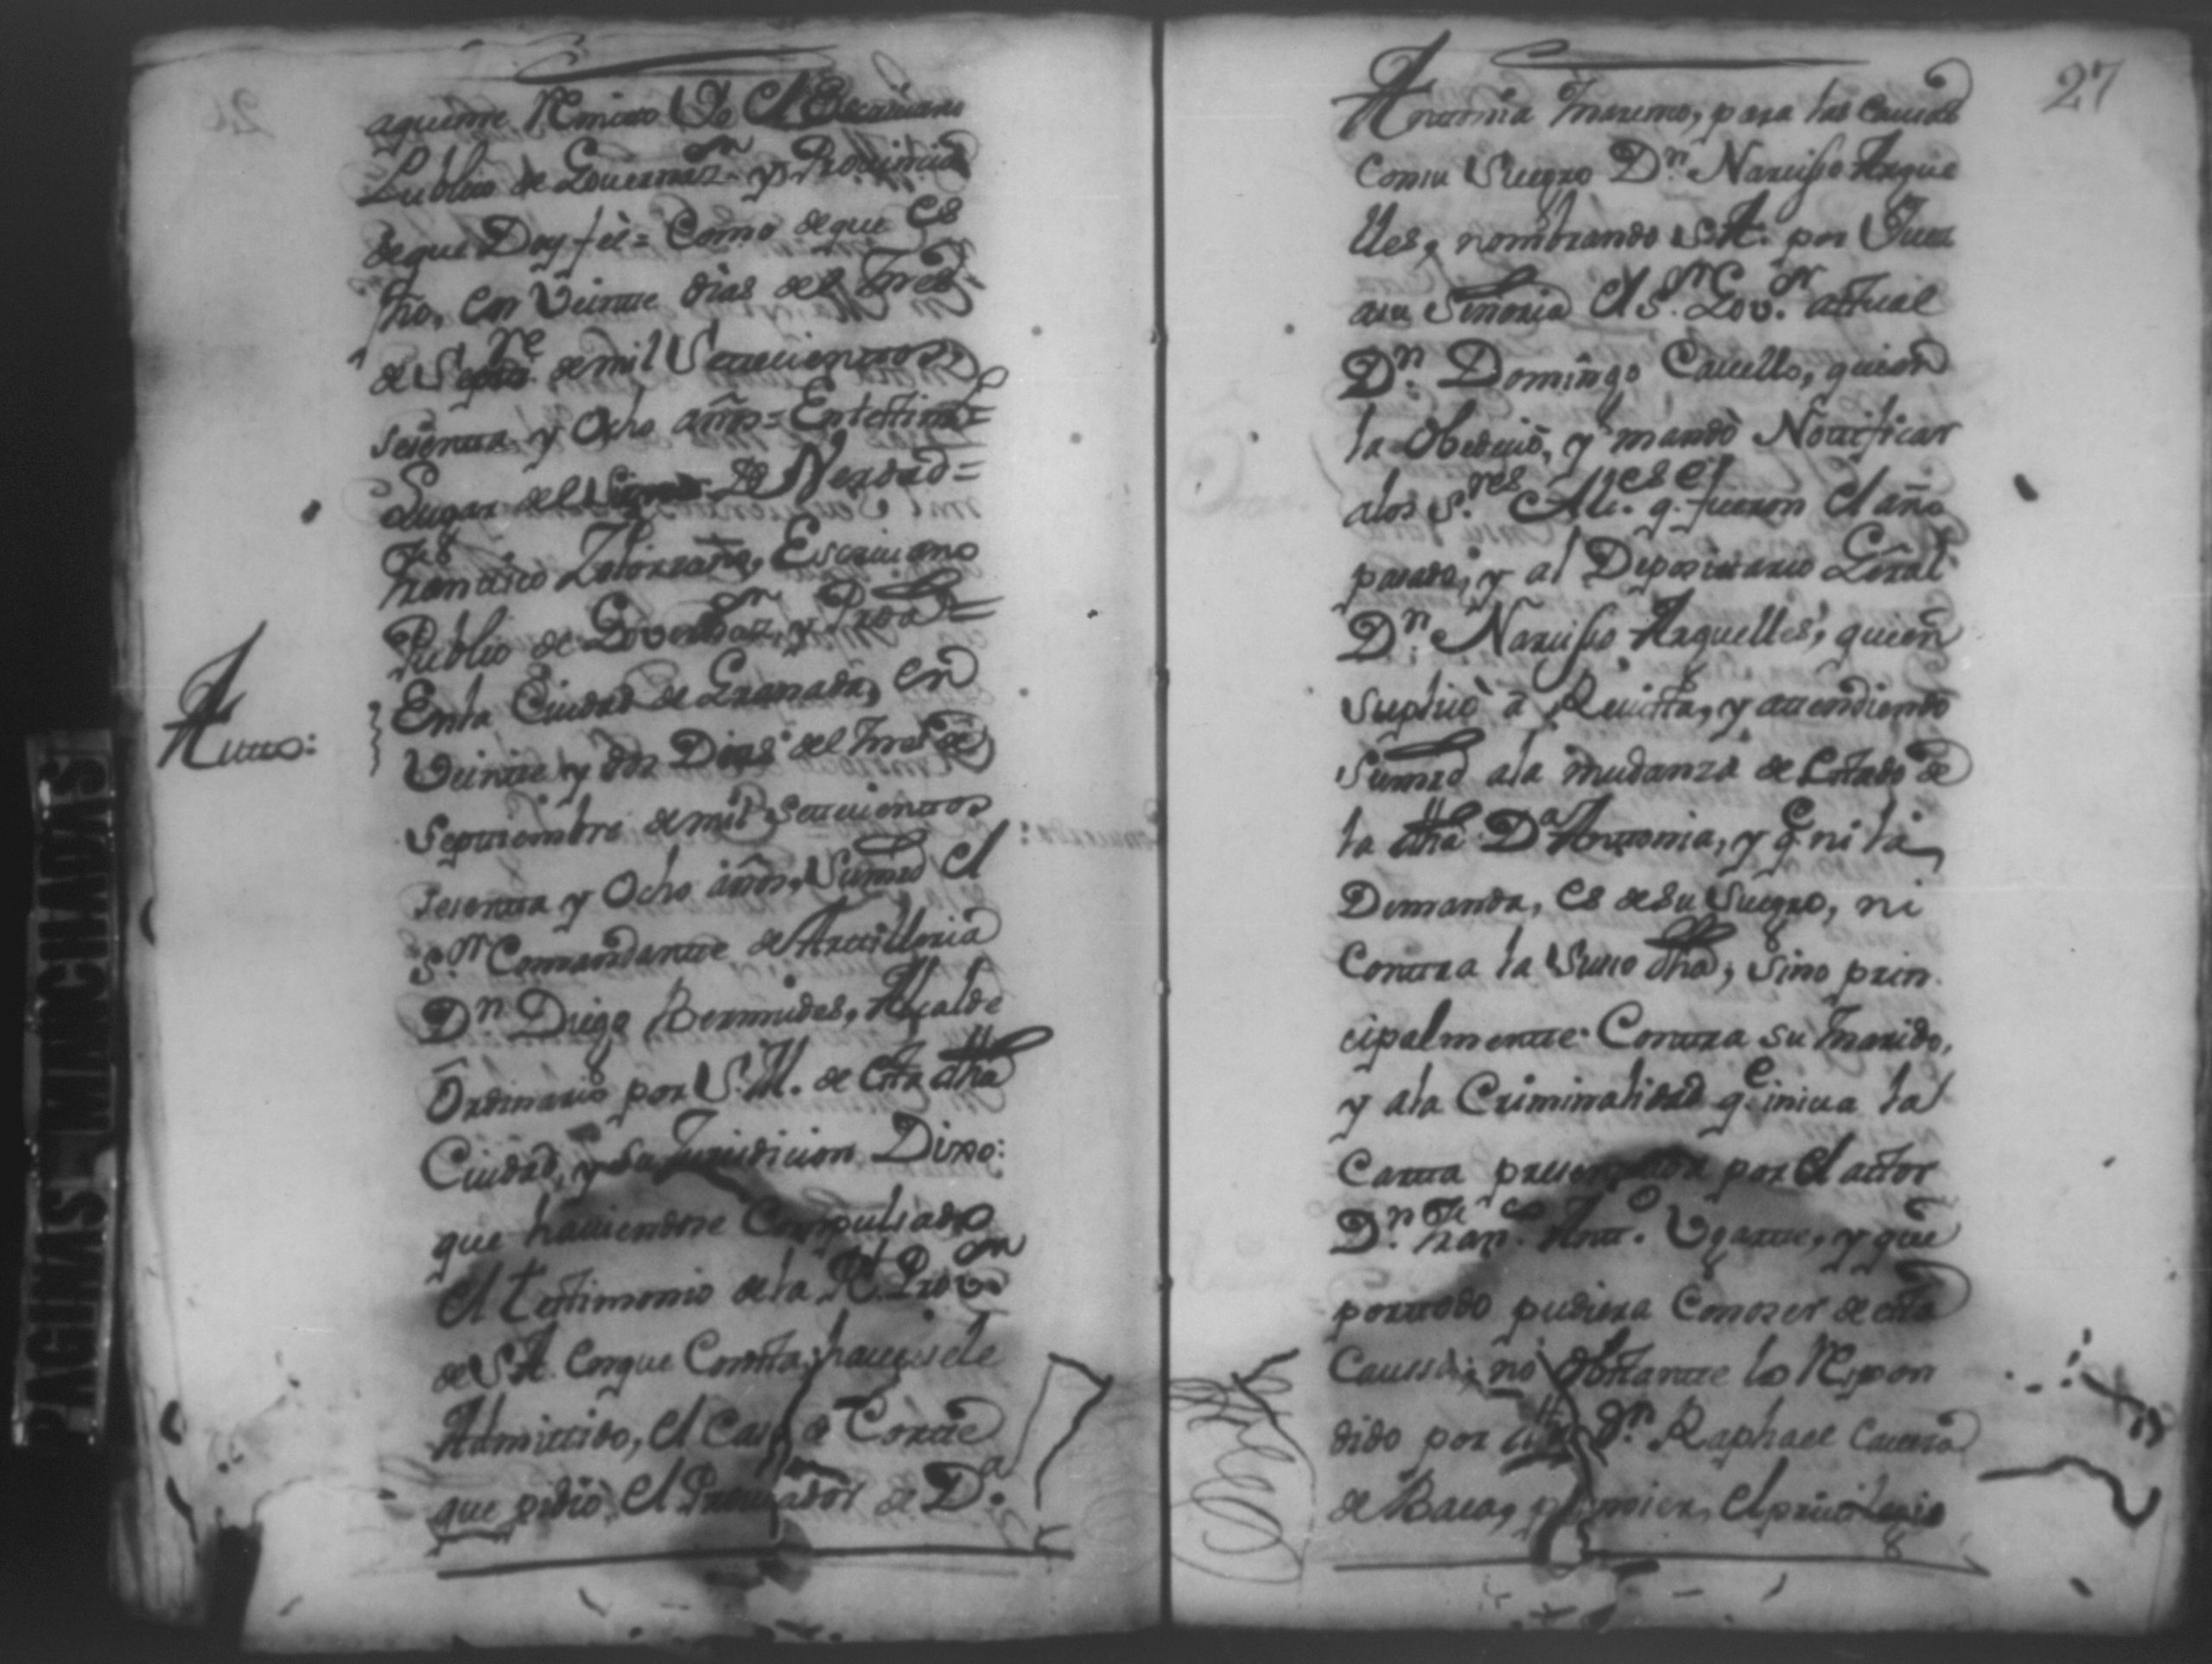 aquien me Remito Yo el Escriuano
Publico de Gouernaz.on y Prouincia
de que Doy fee = Como de que es
fho, en Veinte dias del Mes
de Sep.re de mil Setecientos
sesenta y Ocho años = En testimo =
Lugar del Signo de Verdad =
Fran.cisco Zolorzano, Escriuano
Publico de Governaz.on y Proa =
Auto:
En la Ciudad de Granada, en
Veinte y dos Dias del Mes de
Septiembre de mil Setecientos
sesenta y Ocho años, Sumrd el
S.or Comandante de Artilleria
D.n Diego Bermudes, Alcalde
Ordinario por S. M. de esta dha
Ciudad, y su Jurisdicion Dixo:
que haviendose Compulsado
el testimonio de la R.l Prov.on
de S. A. Con que Consta haversele
Admittido, el Caso de Corte
que pidió el Procurador de D.a
27
Antonia Moreno, para las Causas
Con su Suegro D.n Narcisso Argue
lles, nombrando S. A. por Juez
a su Señoria el S.or Gov.or actual
D.n Domingo Cavello, quien
la Obedeció, y mandó Notificar
a los S.res Alc.es q.e fueron el año
pasado, y al Depositario Gôral
D.n Narcisso Arguelles, quien
Suplicó a Revista, y attendiendo
Sumrd a la mudanza de Estado de
la dha D.a Antonia, y q.e ni la
Demanda, es de su Suegro, ni
Contra la Suso dha, Sino prin
cipalmente Contra su Marido,
y a la Criminalidad q.e inicia la
Carta presentada por el actor
D.n Fran.co Ant.o Ugarte, y que
por todo pudiera Conozer de esta
Caussa, no Obstante lo Respon
dido por dho D.n Raphael Cavesa
de Baca, el privilegio
PAGINAS MANCHADAS